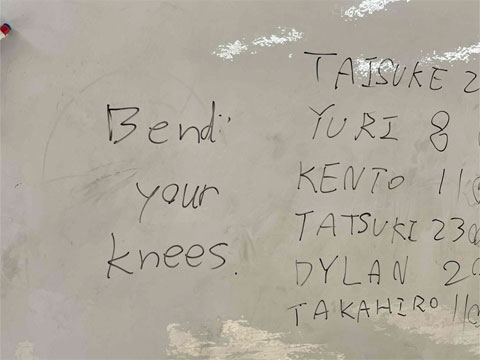 Bend
your
knees.
TAISUKE 2
YURI 8
KENTO 110
TATSUKI 230
DYLAN 20
TAKAHIRO 110